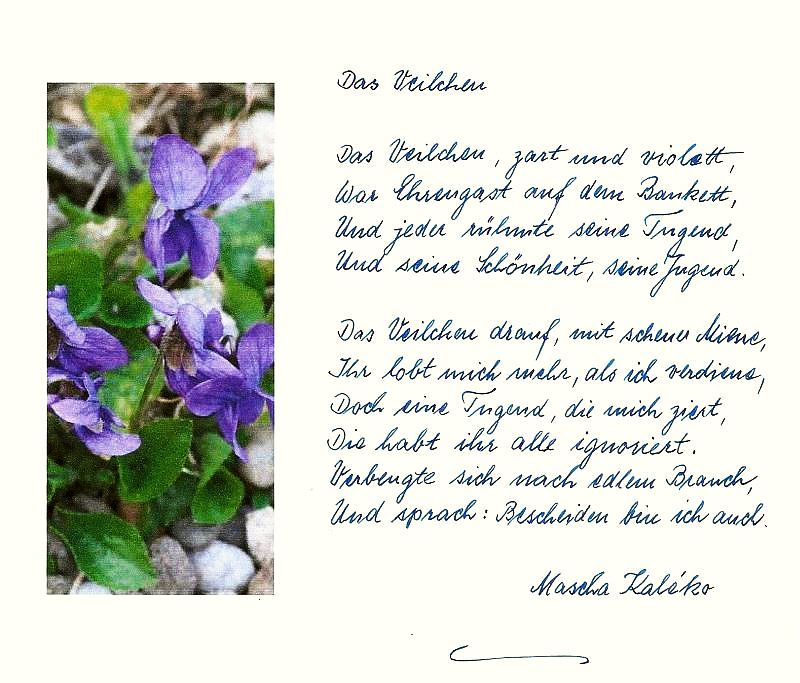 Das Veilchen
Das Veilchen, zart und violett,
War Ehrengast auf dem Bankett,
Und jeder rühmte seine Tugend,
Und seine Schönheit, seine Jugend.
Das Veilchen drauf, mit scheuer Miene,
Ihr lobt mich mehr, als ich verdiene,
Doch eine Tugend, die mich ziert,
Die habt ihr alle ignoriert.
Verbeugte sich nach edlem Brauch,
Und sprach: Bescheiden bin ich auch.
Mascha Kaléko